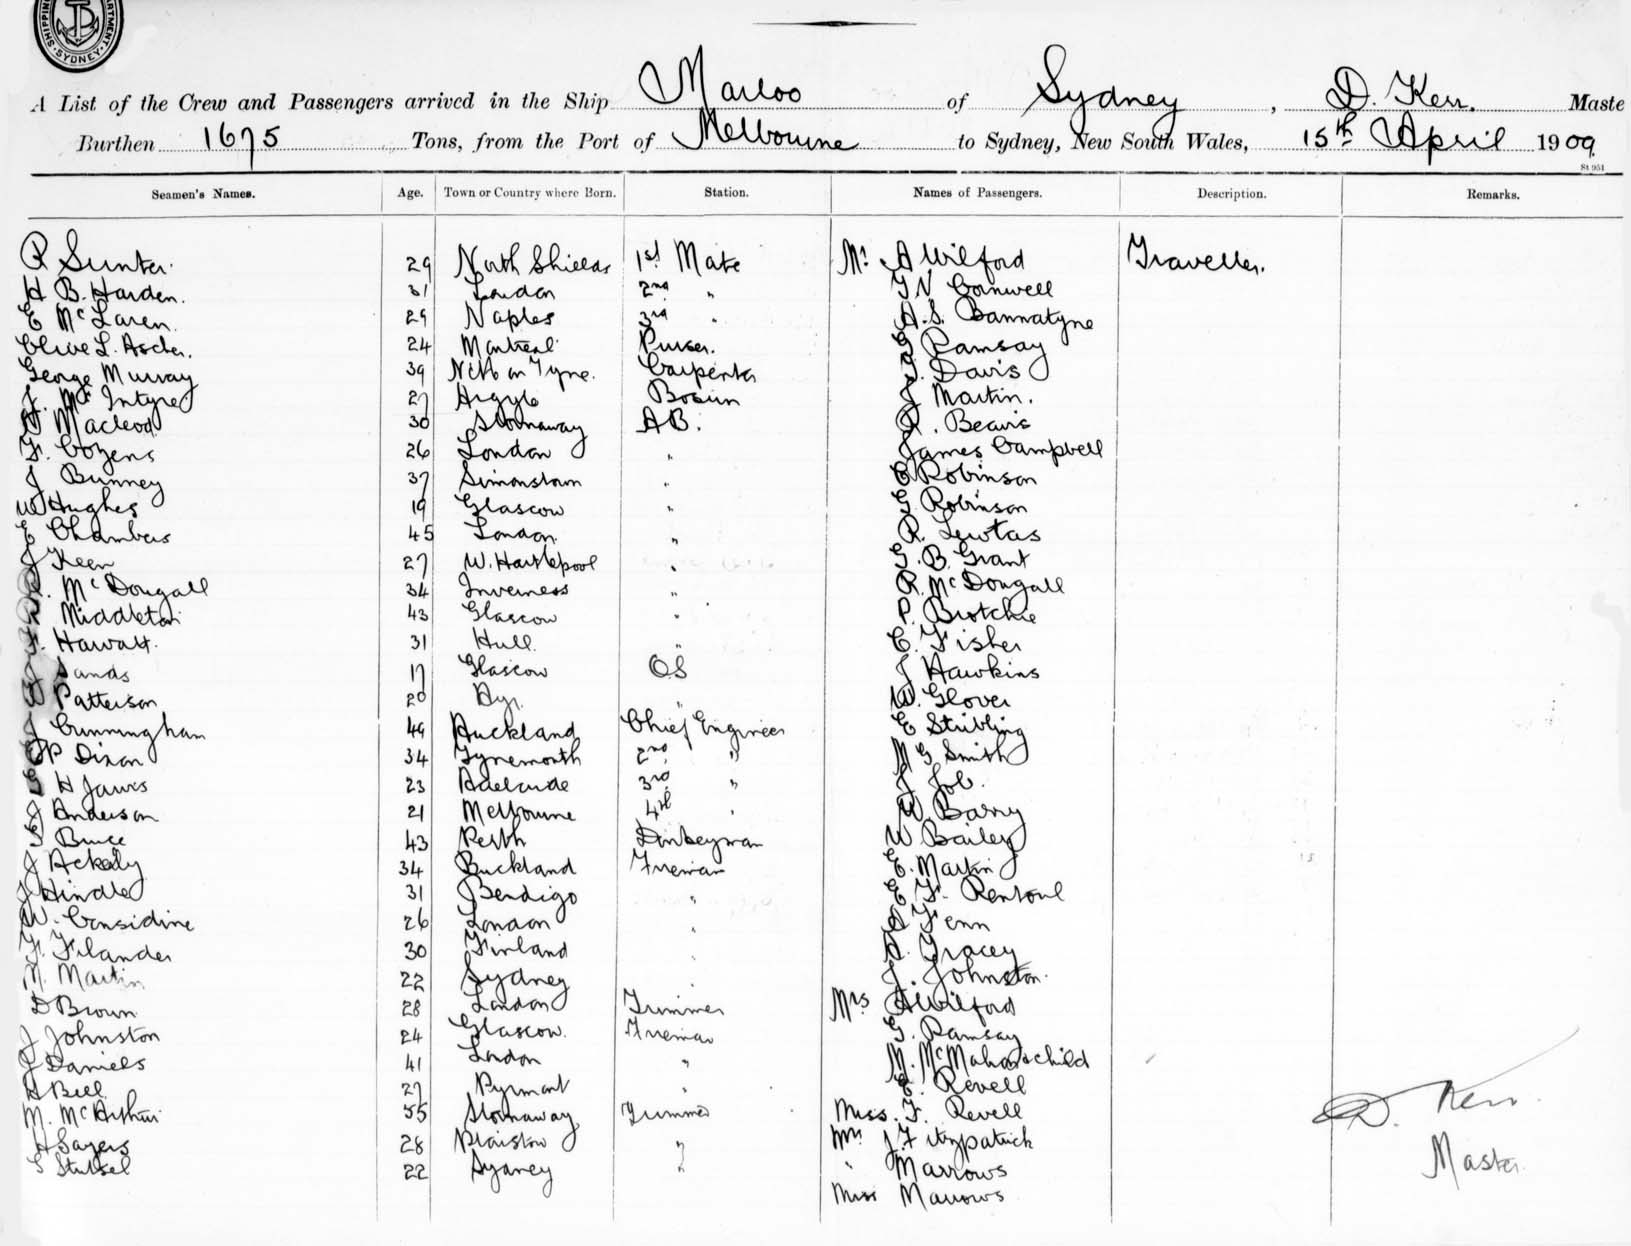 SHIPPING DEPARTMENT. SYDNEY.
A List of the Crew and Passengers arrived in the Ship Marloo of Sydney, D. Kerr. Maste
Burthen 1675 Tons, from the Port of Melbourne to Sydney, New South Wales, 15th April 1909
St 951
Seamen's Names. Age. Town or Country where Born. Station. Names of Passengers. Description. Remarks.
R Sunter. 29 North Shields 1st Mate Mr A Wilford Traveller.
H B. Harden. 31 London 2nd " T N Cornwell
E McLaren. 29 Naples 3rd " A.S. Bannatyne
Clive L. Ascher. 24 Montreal Purser. G Ramsay
George Murray 39 N'C on Tyne. Carpenter Davis
J. McIntyre 27 Argyle Bosun J Martin.
Macleod 30 Stornaway AB. R. Beavis
F. Cozens 26 London " James Campbell
J Bunney 37 Simonstown " C Robinson
W Hughes 19 Glascow " G Robinson
E Chambers 45 London " R. Lewtas
J Keen 27 W. Hartlepool " G. B. Grant
McDougall 34 Inverness " R. McDougall
Middleton 43 Glascow " P. Brotchie
Hawatt. 31 Hull " C. Fisher
Sands 17 Glascow OS J Hawkins
Patterson 20 Ayr. " W. Glover
J Cunningham 49 Auckland Chief Engineer E Stribling
P Dixon 34 Tynemouth 2nd " M G Smith
H Jarvis 23 Adelaide 3rd " J Job.
J Anderson 21 Melbourne 4th " W Barry
Bruce 43 Perth Donkeyman W Bailey
J Ackerly 34 Auckland Fireman E. Martin
J Hindle 31 Bendigo " E F. Rentoul
W. Considine 26 London " Fenn
F. Filander 30 Finland " Tracey
M. Martin 22 Sydney " J. Johnston.
D Brown 28 London Trimmer Mrs A Wilford
J Johnston 24 Glascow. Fireman G. Ramsay
J Daniels 41 London " M. McMahon & child
A Bell 27 Pyrmont " E. Revell
M. McArthur 55 Stornaway Trimmer Miss. F. Revell
H Sayers 28 Plaistow " Mrs J Fitzpatrick
22 Sydney " " Marrows
Miss Marrows
D. Kerr.
Master.